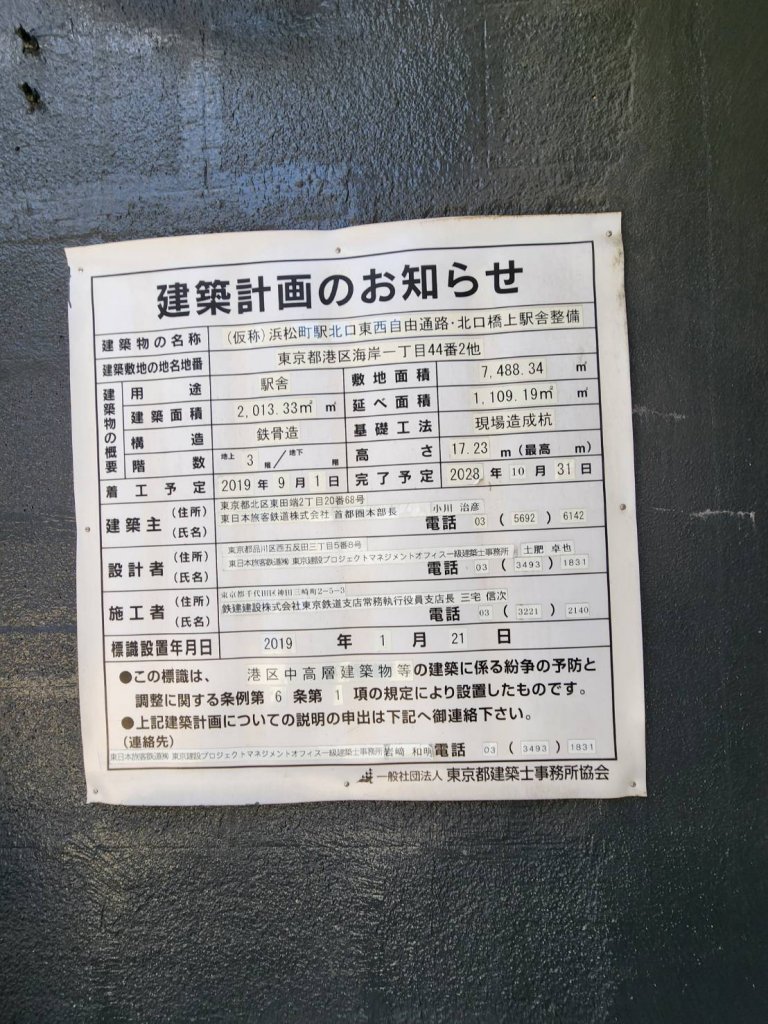 建築計画のお知らせ
建築物の名称 (仮称)浜松町駅北口東西自由通路・北口橋上駅舎整備
建築敷地の地名地番 東京都港区海岸一丁目44番2他
建築物の概要
用途 駅舎 敷地面積 7,488.34 ㎡
建築面積 2,013.33㎡ ㎡ 延べ面積 1,109.19㎡ ㎡
構造 鉄骨造 基礎工法 現場造成杭
階数 地上 3 階/地下 階 高さ 17.23 m(最高 m)
着工予定 2019 年 9 月 1 日 完了予定 2028 年 10 月 31 日
建築主 (住所) 東京都北区東田端2丁目20番68号
(氏名) 東日本旅客鉄道株式会社 首都圏本部長 小川 治彦 電話 03 ( 5692 ) 6142
設計者 (住所) 東京都品川区西五反田三丁目5番8号
(氏名) 東日本旅客鉄道㈱ 東京建設プロジェクトマネジメントオフィス一級建築士事務所 土肥 卓也 電話 03 ( 3493 ) 1831
施工者 (住所) 東京都千代田区神田三崎町2-5-3
(氏名) 鉄建建設株式会社東京鉄道支店常務執行役員支店長 三宅 信次 電話 03 ( 3221 ) 2140
標識設置年月日 2019 年 1 月 21 日
●この標識は、 港区中高層建築物等の建築に係る紛争の予防と
調整に関する条例第 6 条第 1 項の規定により設置したものです。
●上記建築計画についての説明の申出は下記へ御連絡下さい。
(連絡先)
東日本旅客鉄道㈱ 東京建設プロジェクトマネジメントオフィス一級建築士事務所 岩﨑 和明 電話 03 ( 3493 ) 1831
一般社団法人 東京都建築士事務所協会